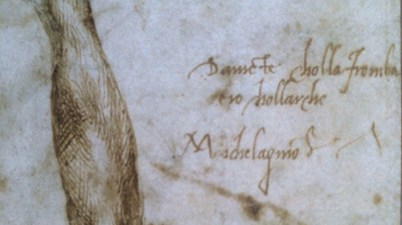 Davicte cholla Fromba
e io chollarcho
Michelagniolo